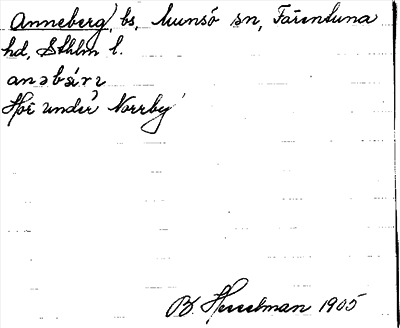 Anneberg, bs, Munsö sn, Färentuna
hd, Sthlm l.
Hör under Norrby
B. Hesselman 1905